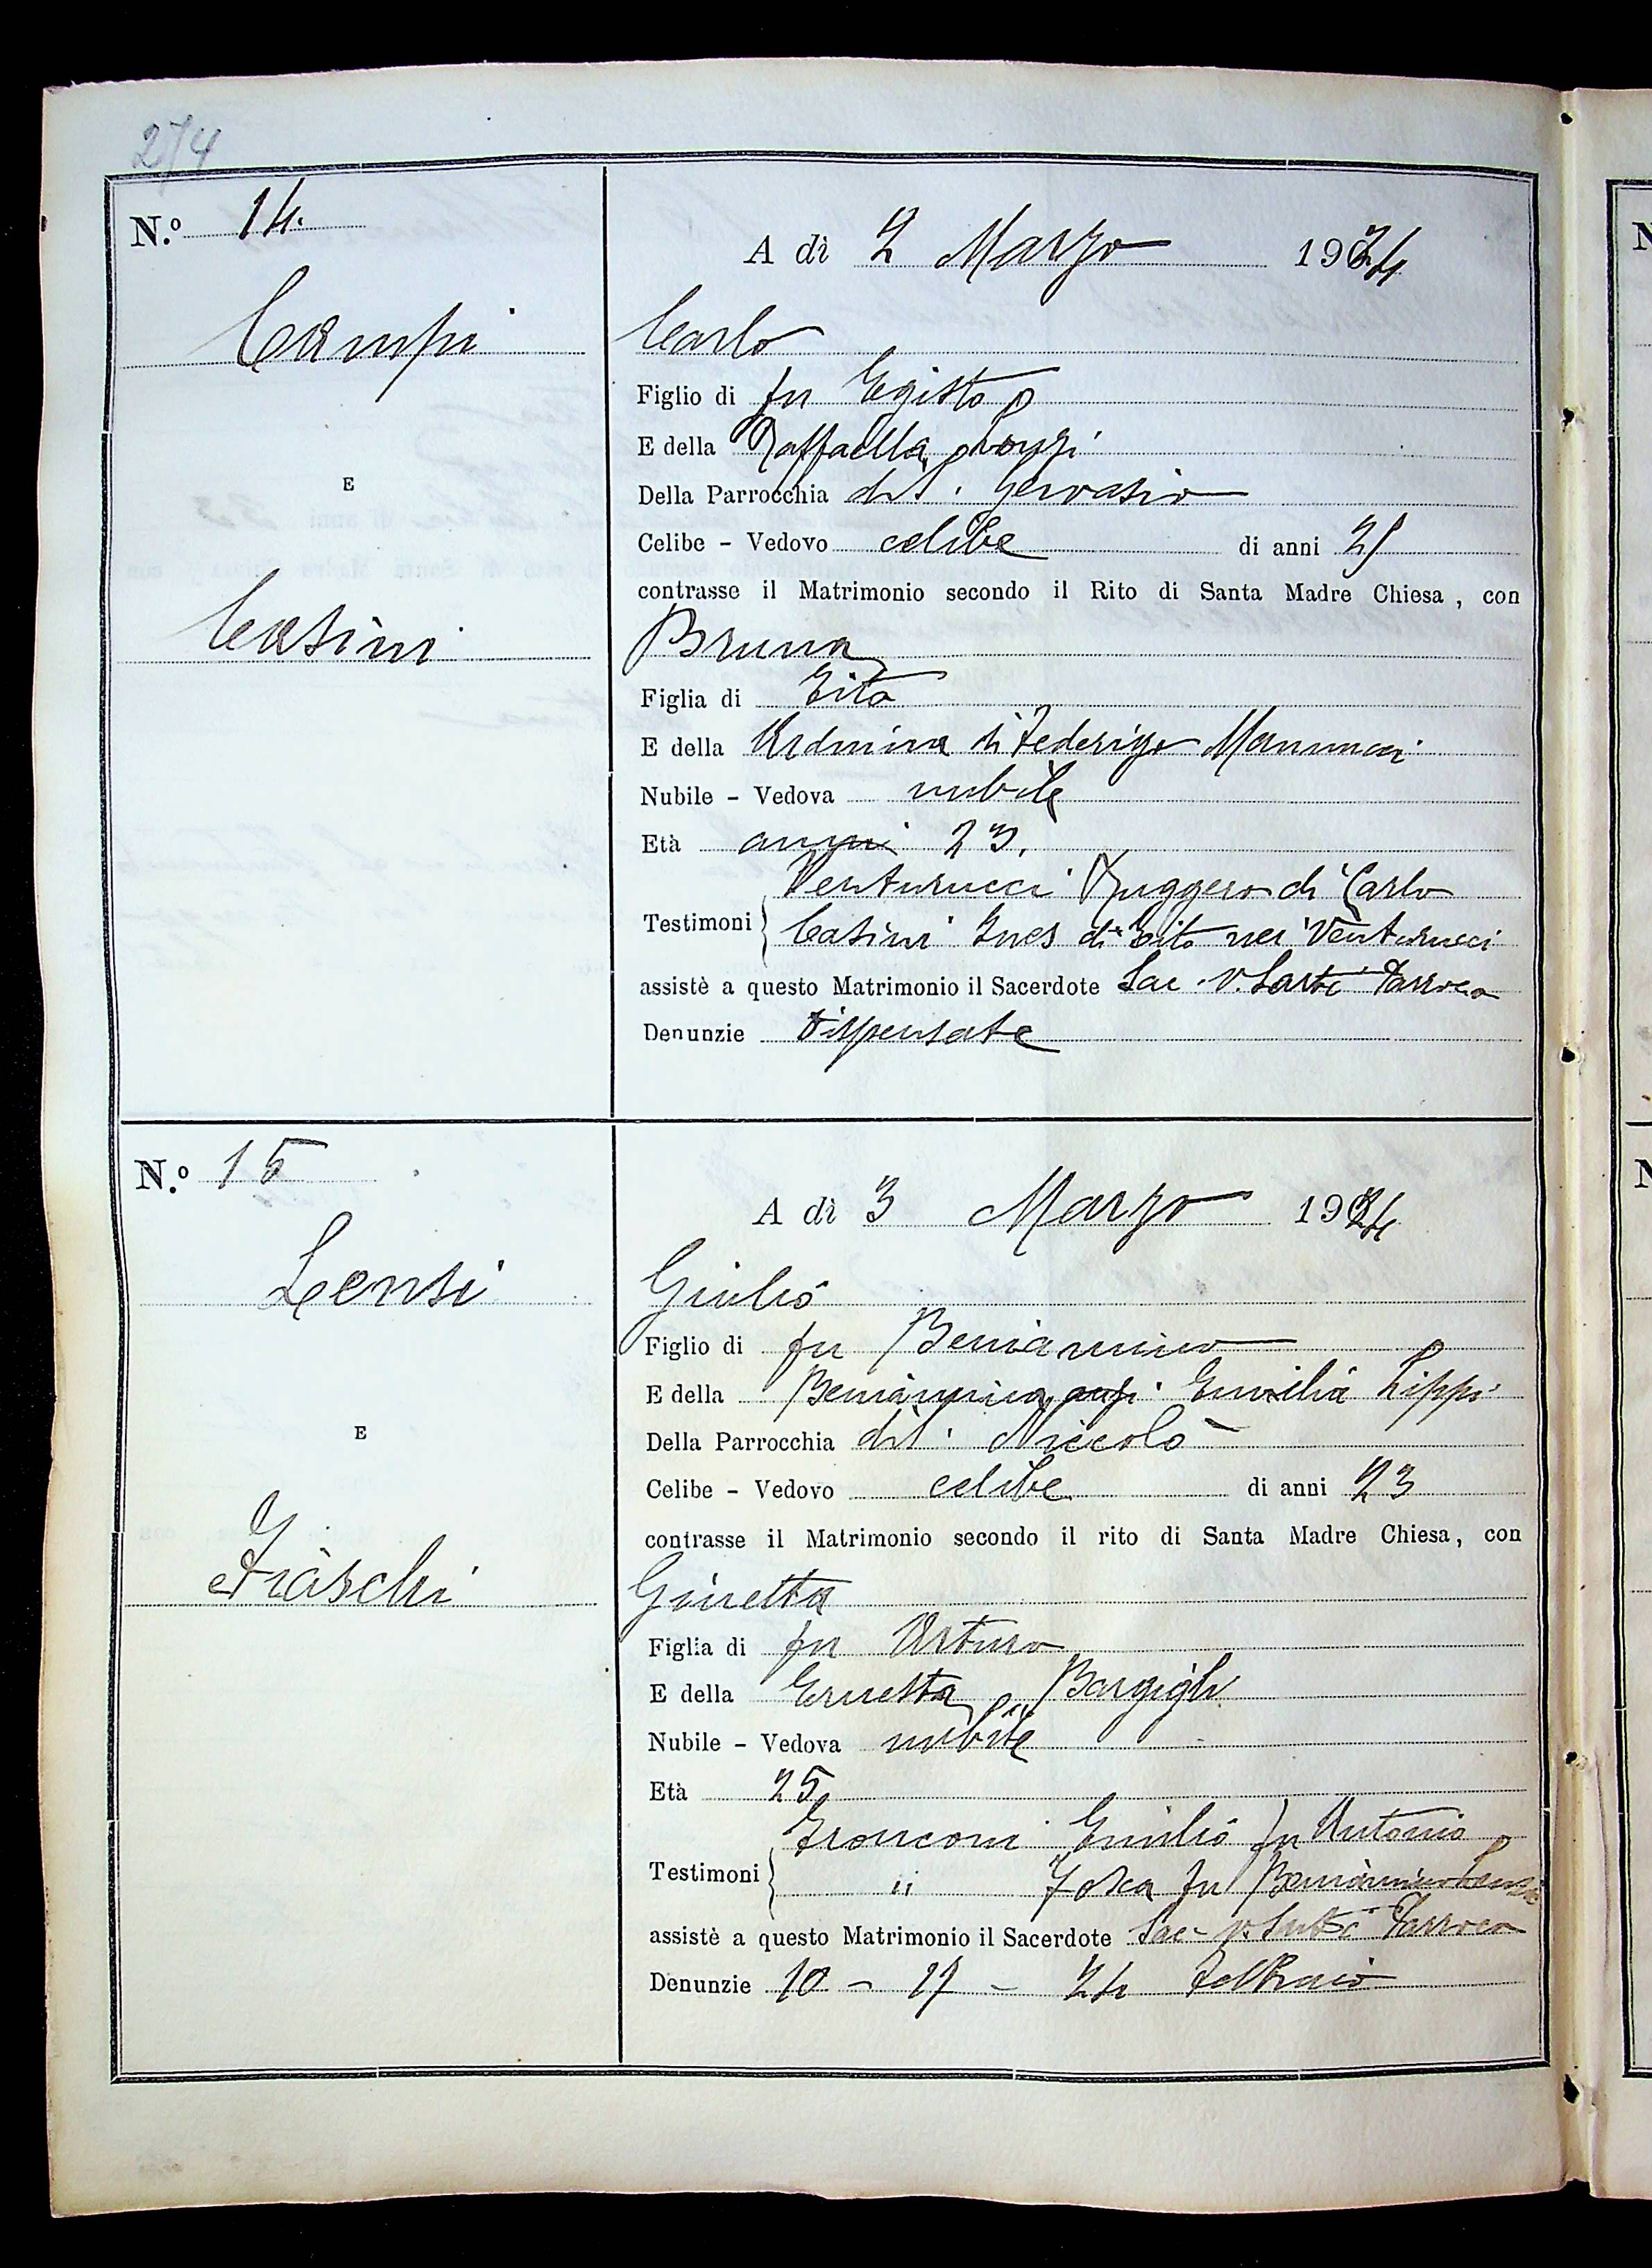 274
N.º 14.
A dì 2 Marzo 1924
Campi
Carlo
Figlio di fu Egisto
E della Raffaella
Della Parrocchia di S. Gervasio
E
Celibe - Vedovo celibe di anni 25
contrasse il Matrimonio secondo il Rito di Santa Madre Chiesa, con
Casini
Bruna
Figlia di Tito
E della Ardmina di Federigo Mannucci
Nubile - Vedova nubile
Età anni 23.
Venturucci Ruggero di Carlo
Testimoni
Casini Ines di Tito nei Venturucci
assistè a questo Matrimonio il Sacerdote Sac. V. Sarti Parroco
Denunzie Dispensate
N.º 15
A dì 3 Marzo 1924
Lensi
Giulio
Figlio di fu Beniamino
E della Emilia Lippi
Della Parrocchia di S. Niccolò
E
Celibe - Vedovo celibe di anni 23
contrasse il Matrimonio secondo il rito di Santa Madre Chiesa, con
Fiaschi
Ginetta
Figlia di fu Arturo
E della Ernesta Bargigli
Nubile - Vedova nubile
Età 25
Fronconi Emilio fu Antonio
Testimoni
" Tosca fu Beniamino Lensi
assistè a questo Matrimonio il Sacerdote Sac. V. Sarti Parroco
Denunzie 10 - 17 - 24 Febbraio